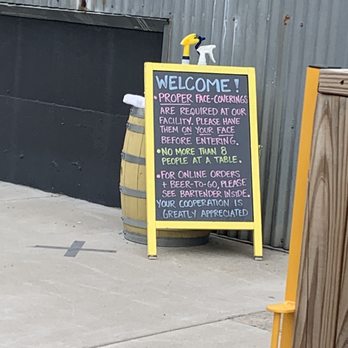 WELCOME!
• PROPER FACE-COVERINGS
ARE REQUIRED AT OUR
FACILITY. PLEASE HAVE
THEM ON YOUR FACE
BEFORE ENTERING.
• NO MORE THAN 8
PEOPLE AT A TABLE.
• FOR ONLINE ORDERS
+ BEER-TO-GO, PLEASE
SEE BARTENDER INSIDE.
YOUR COOPERATION IS
GREATLY APPRECIATED